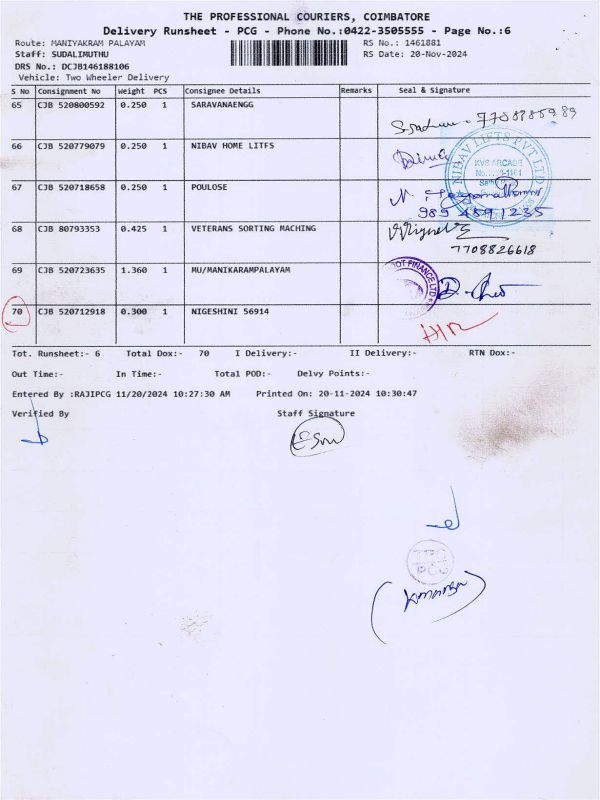 THE PROFESSIONAL COURIERS, COIMBATORE
Delivery Runsheet - PCG - Phone No.:0422-3505555 - Page No.:6
Route: MANIYAKRAM PALAYAM RS No.: 1461881
Staff: SUDALIMUTHU RS Date: 20-Nov-2024
DRS No.: DCJB146188106
Vehicle: Two Wheeler Delivery
S No Consignment No Weight PCS Consignee Details Remarks Seal & Signature
65 CJB 520800592 0.250 1 SARAVANAENGG
7708785989
66 CJB 520779079 0.250 1 NIBAV HOME LITFS
NIBAV LIFTS PVT LTD
KVS ARCADE
67 CJB 520718658 0.250 1 POULOSE
989 4591235
68 CJB 80793353 0.425 1 VETERANS SORTING MACHING
7708826618
69 CJB 520723635 1.360 1 MU/MANIKARAMPALAYAM
FINANCE LTD
70 CJB 520712918 0.300 1 NIGESHINI 56914
Tot. Runsheet:- 6 Total Dox:- 70 I Delivery:- II Delivery:- RTN Dox:-
Out Time:- In Time:- Total POD:- Delvy Points:-
Entered By :RAJIPCG 11/20/2024 10:27:30 AM Printed On: 20-11-2024 10:30:47
Verified By Staff Signature